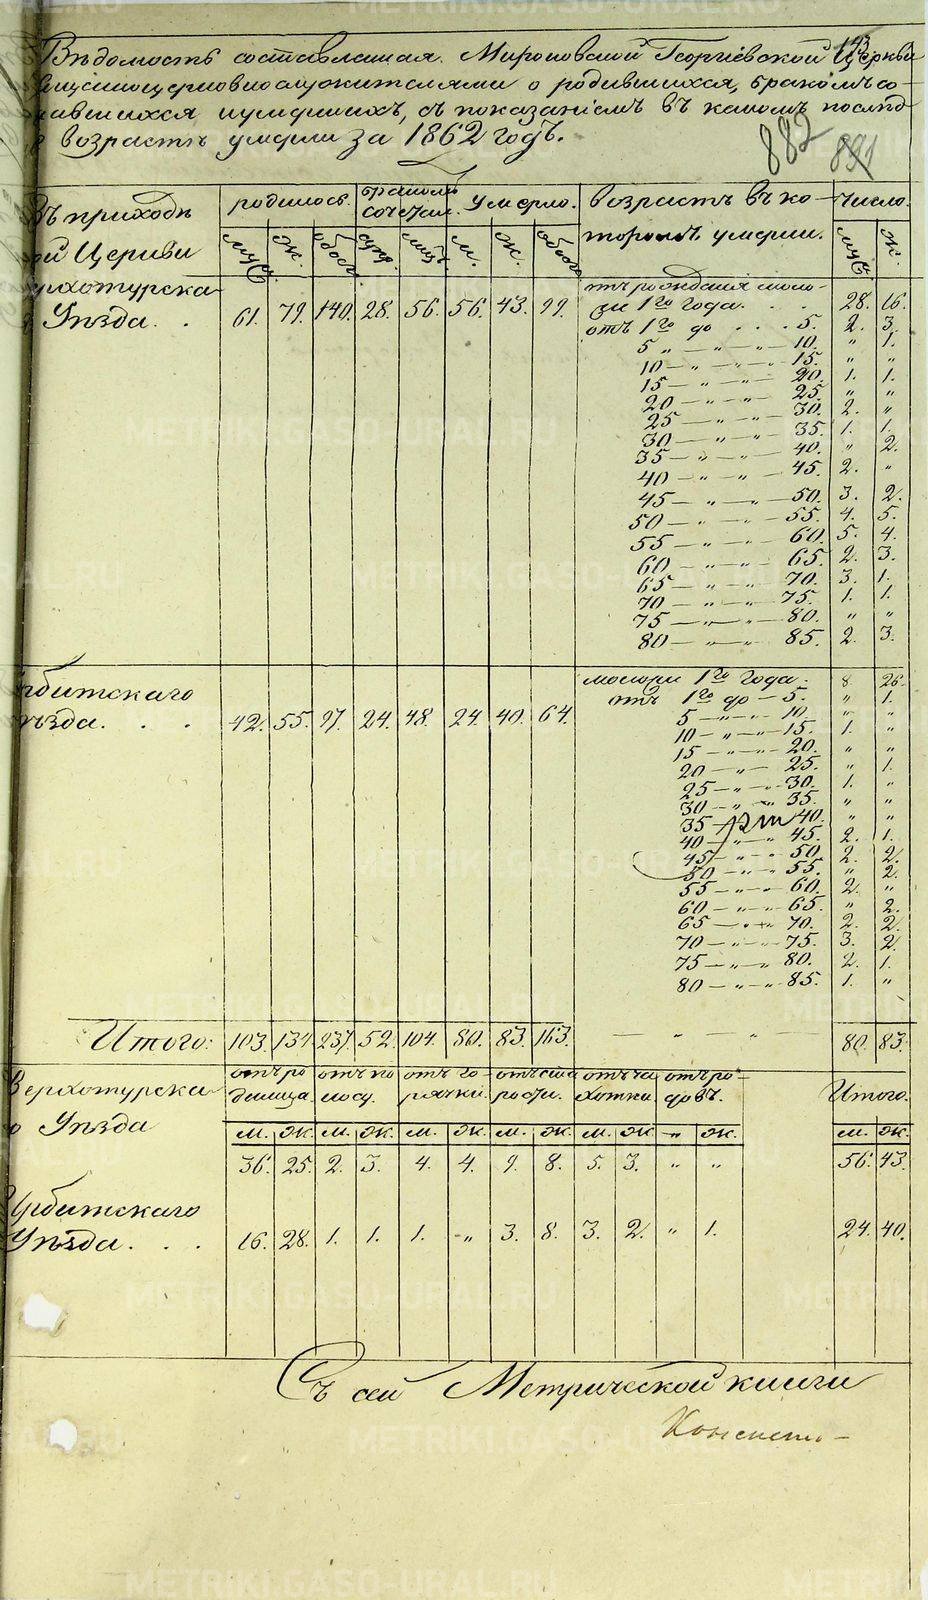 143
Вѣдомость составленная Мироновской Георгіевской Церкви
священноцерковнослужителями о родившихся, бракомъ со-
четавшихся и умершихъ, съ показаніемъ въ какомъ
возрастѣ умерли за 1862 годъ.
882 891
въ приходѣ родилось. бракомъ сочетал. Умерло. возрастъ въ ко- Число.
Церкви муж. ж. обоего супр. лицъ м. ж. обоего торомъ умерли. муж. ж.
отъ рожденія моло-
Уѣзда. . 61. 79. 140. 28. 56. 56. 43. 99. же 1го года. . . 28. 16.
отъ 1го до . . . 5. 2. 3.
5 „ — „ — 10. „ 1.
10 — „ — „ — 15. „ „
15 — „ — „ — 20. 1. 1.
20 — „ — „ — 25. „ „
25 — „ — „ — 30. 2. „
30 — „ — „ — 35. 1. 1.
35 — „ — „ — 40. „ 2.
40 — „ — „ — 45. 2. „
45 — „ — „ — 50. 3. 2.
50 — „ — „ — 55. 4. 5.
55 — „ — „ — 60. 5. 4.
60 — „ — „ — 65. 2. 3.
65 — „ — „ — 70. 3. 1.
70 — „ — „ — 75. 1. 1.
75 — „ — „ — 80. „ „
80 — „ — „ — 85. 2. 3.
Ирбитскаго моложе 1го года. 8. 26.
Уѣзда. . . 42. 55. 97. 24. 48. 24. 40. 64. отъ 1го до — 5. „ 1.
5 — „ — 10. „ „
10 — „ — 15. 1. „
15 — „ — 20. „ „
20 — „ — 25. „ 1.
25 — „ — 30. 1. „
30 — „ — 35. „ „
35 — 40. „ „
40 — „ — 45. 2. 1.
45 — „ — 50. 2. 2.
50 — „ — 55. „ 2.
55 — „ — 60. 2. „
60 — „ — 65. „ 2.
65 — „ — 70. 2. 2.
70 — „ — 75. 3. 2.
75 — „ — 80. 2. 1.
80 — „ — 85. 1. „
Итого: 103. 134. 237. 52. 104. 80. 83. 163. — „ — „ 80. 83.
Верхотурска- отъ ро- отъ по- отъ го- отъ ста- отъ ча- отъ ро- Итого.
димца. носу. рячки. рости. хотки. довъ.
Уѣзда м. ж. м. ж. м. ж. м. ж. м. ж. „ ж. м. ж.
36. 25. 2. 3. 4. 4. 9. 8. 5. 3. „ „ 56. 43.
Ирбитскаго
Уѣзда. . . 16. 28. 1. 1. 1. „ 3. 8. 3. 2. „ 1. 24. 40.
Съ сей Метрической книги
METRIKI.GASO-URAL.RU